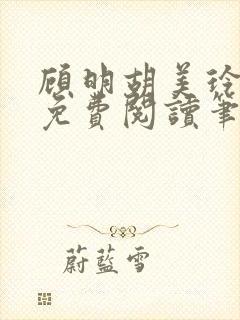 顾明胡美玲
免費閱讀筆
蔚藍雪